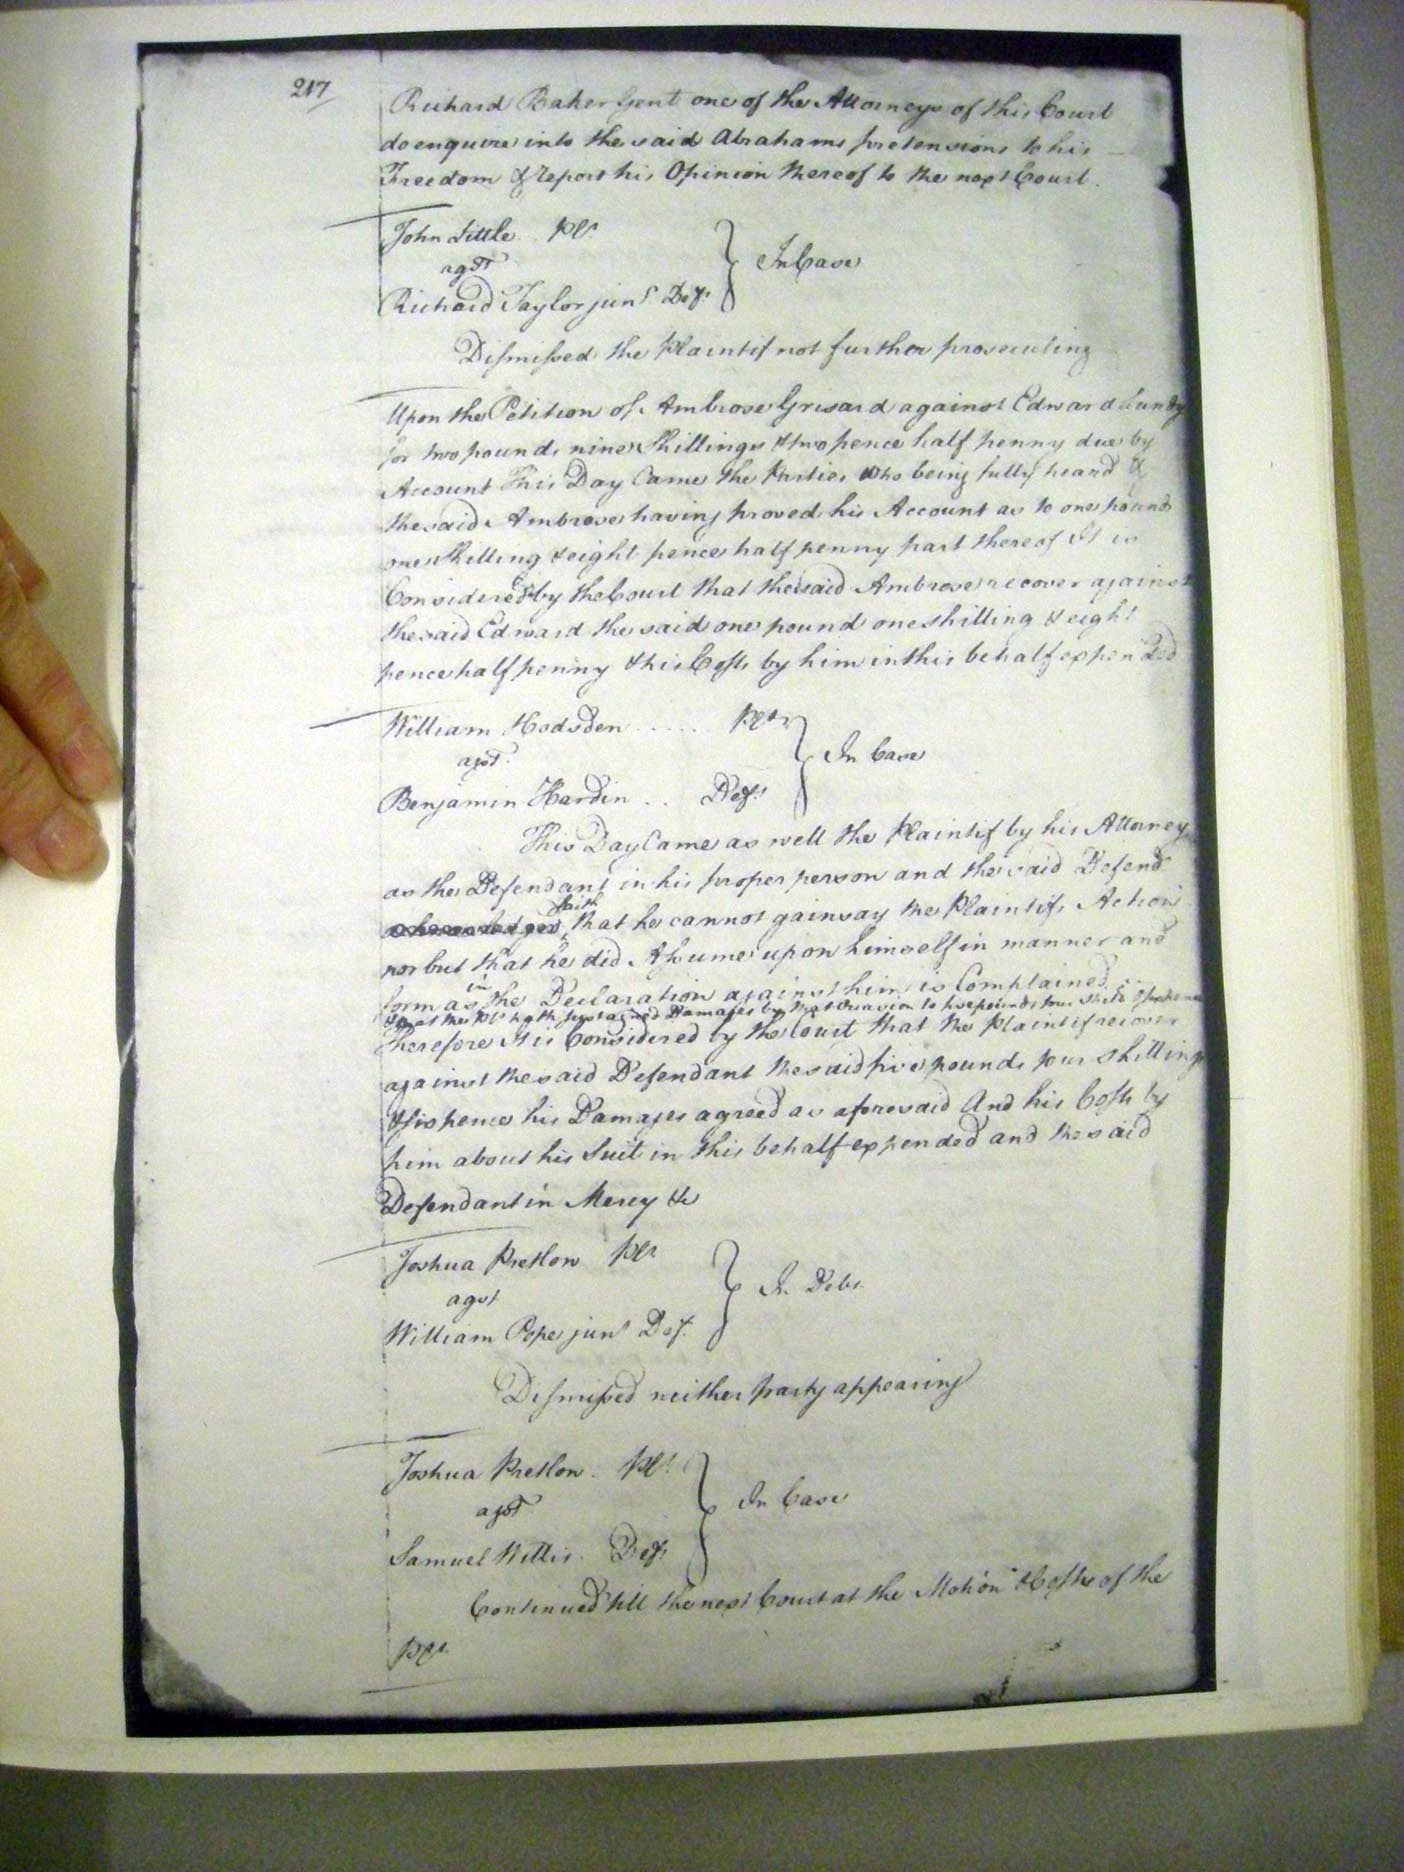 217
Richard Baker Gent one of the Attorneys of this Court
do enquire into the said Abrahams pretensions to his
Freedom & report his Opinion thereof to the next Court.
John Little Plt.
agst
Richard Taylor junr Deft.
In Case
Dismissed the Plaintif not further prosecuting
Upon the Petition of Ambrose Grisard against Edward
for two pounds nine Shillings & two pence half penny due by
Account This Day Came the Parties who being fully heard &
the said Ambrose having proved his Account as to one pound
one Shilling & eight pence half penny part thereof It is
Considered by the Court that the said Ambrose recover against
the said Edward the said one pound one shilling & eight
pence half penny & his Costs by him in this behalf expended
William Hodsden ..... Plt
agst.
Benjamin Hardin .. Deft.
In Case
This Day Came as well the Plaintif by his Attorney
as the Defendant in his proper person and the said Defend
saith
acknowledges that he cannot gainsay the Plaintifs Action
nor but that he did Assume upon himself in manner and
in
form as the Declaration against him is Complained
that the Plt hath sustained Damages by that Occasion to five pounds four Shills & six pence
Therefore It is Considered by the Court that the Plaintif recover
against the said Defendant the said five pounds four Shillings
& six pence his Damages agreed as aforesaid And his Costs by
him about his Suit in this behalf expended and the said
Defendant in Mercy &c
Joshua Pretlow Plt
agst
William Pope junr Deft.
In Debt.
Dismissed neither party appearing
Joshua Pretlow. Plt.
agst
Samuel Willis. Deft
In Case
Continued till the next Court at the Motion & Costs of the
Plt.